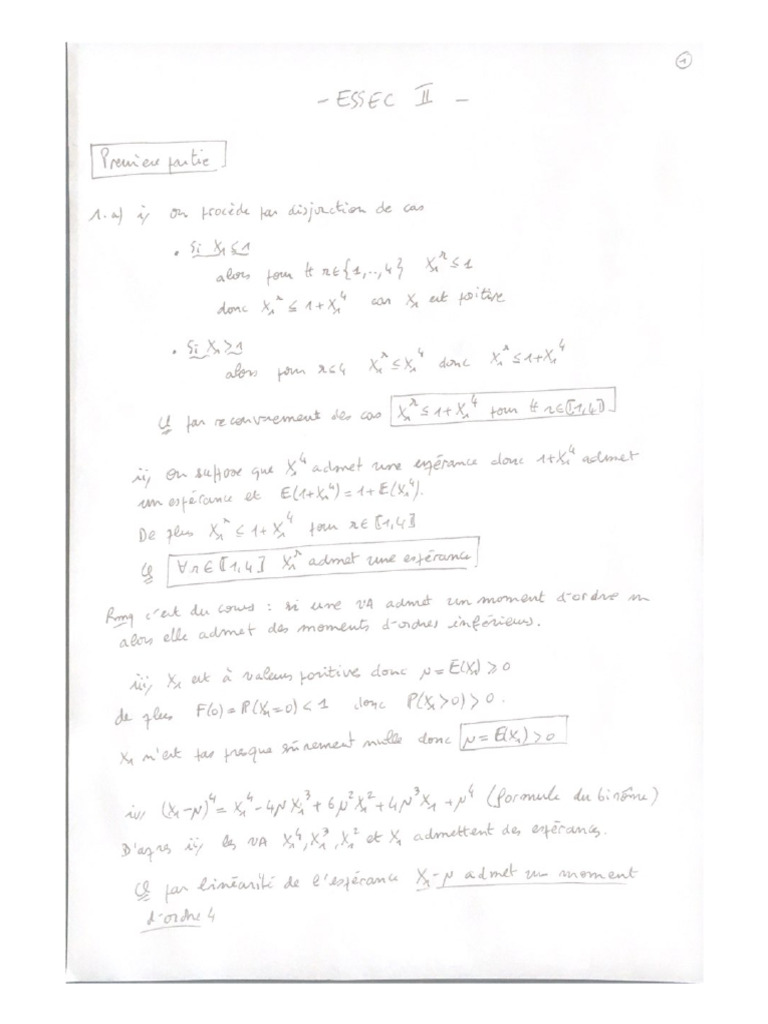 1
- ESSEC II -
Première partie
1. a) i) on procède par disjonction de cas
• Si X₁ ≤ 1
alors pour tt r∈{1,..,4} X₁^r ≤ 1
donc X₁^r ≤ 1+X₁^4 car X₁ est positive
• Si X₁ > 1
alors pour r≤4 X₁^r ≤ X₁^4 donc X₁^r ≤ 1+X₁^4
par recouvrement des cas X₁^r ≤ 1+X₁^4 pour tt r∈⟦1,4⟧
ii) on suppose que X₁^4 admet une espérance donc 1+X₁^4 admet
une espérance et E(1+X₁^4) = 1+E(X₁^4).
De plus X₁^r ≤ 1+X₁^4 pour r∈⟦1,4⟧
∀r∈⟦1,4⟧ X₁^r admet une espérance
Rmq c'est du cours : si une VA admet un moment d'ordre n
alors elle admet des moments d'ordres inférieurs.
iii) X₁ est à valeurs positives donc μ = E(X₁) ≥ 0
de plus F(0) = P(X₁=0) < 1 donc P(X₁>0) > 0.
X₁ n'est pas presque sûrement nulle donc μ = E(X₁) > 0
iv) (X₁-μ)^4 = X₁^4 - 4μX₁^3 + 6μ²X₁² + 4μ³X₁ + μ^4 (formule du binôme)
D'après ii) les VA X₁^4, X₁^3, X₁^2 et X₁ admettent des espérances.
par linéarité de l'espérance X₁-μ admet un moment
d'ordre 4